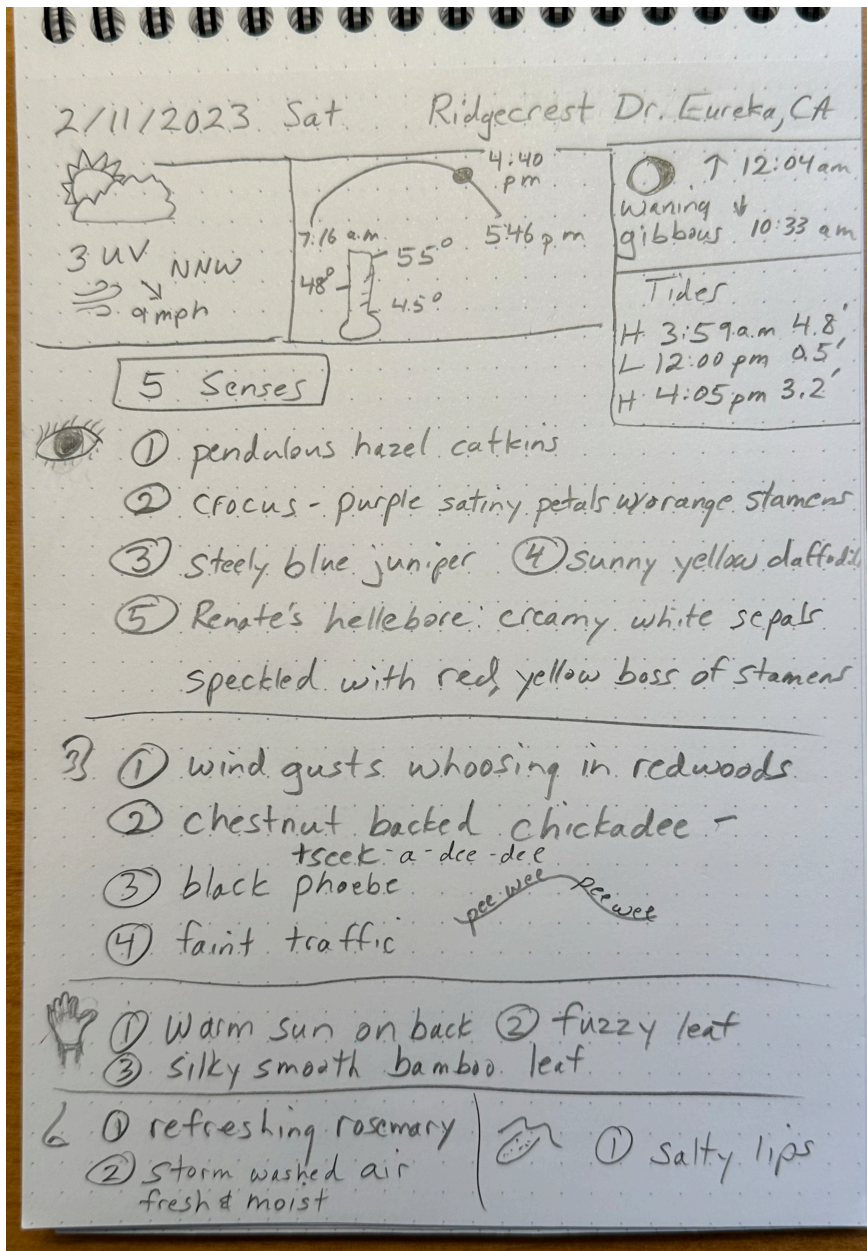 2/11/2023 Sat. Ridgecrest Dr. Eureka, CA
4:40 pm
7:16 a.m
5:46 p.m
3 UV NNW
9mph
55°
48°
45°
↑ 12:04 am
waning ↓
gibbous 10:33 am
Tides
H 3:59 a.m 4.8'
L 12:00 pm 0.5'
H 4:05 pm 3.2'
5 Senses
① pendulous hazel catkins
② crocus - purple satiny petals w/orange stamens
③ steely blue juniper ④ sunny yellow daffodils
⑤ Renate's hellebore: creamy white sepals
speckled with red, yellow boss of stamens
① wind gusts whoosing in redwoods
② chestnut backed chickadee -
tseek-a-dee-dee
③ black phoebe pee wee pee wee
④ faint traffic
① Warm sun on back ② fuzzy leaf
③ silky smooth bamboo leaf
① refreshing rosemary
② storm washed air
fresh & moist
① salty lips